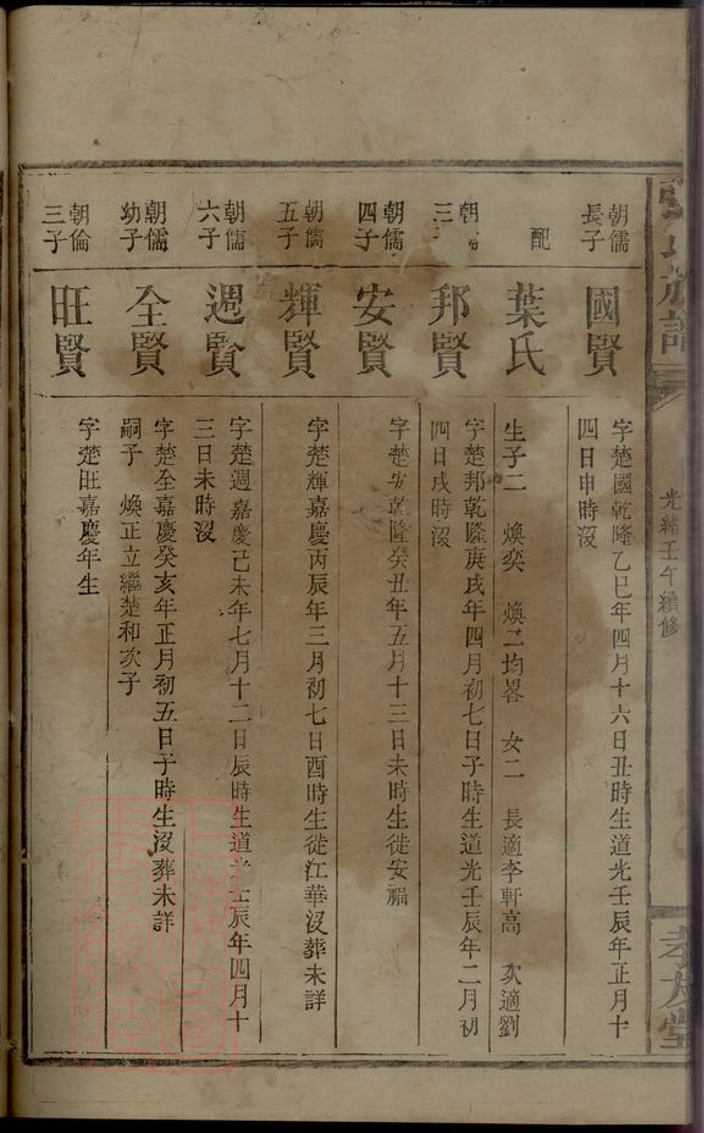 氏族譜
光緒壬午續修
孝友堂
朝儒
長子
國賢
字楚國乾隆乙巳年四月十六日丑時生道光壬辰年正月十
四日申時沒
配
葉氏
生子二 煥奕 煥二均畧 女二 長適李軒高 次適劉
朝
三
邦賢
字楚邦乾隆庚戌年四月初七日子時生道光壬辰年二月初
四日戌時沒
朝儒
四子
安賢
字楚安乾隆癸丑年五月十三日未時生徙安福
朝儒
五子
輝賢
字楚輝嘉慶丙辰年三月初七日酉時生徙江華沒葬未詳
朝儒
六子
週賢
字楚週嘉慶己未年七月十二日辰時生道光壬辰年四月十
三日未時沒
朝儒
幼子
全賢
字楚全嘉慶癸亥年正月初五日子時生沒葬未詳
嗣子 煥正立繼楚和次子
朝倫
三子
旺賢
字楚旺嘉慶年生